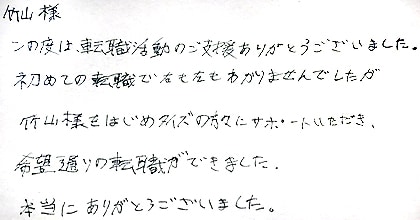 竹山様
この度は、転職活動のご支援ありがとうございました。
初めての転職で右も左もわかりませんでしたが
竹山様をはじめタイズの方々にサポートいただき、
希望通りの転職ができました。
本当にありがとうございました。